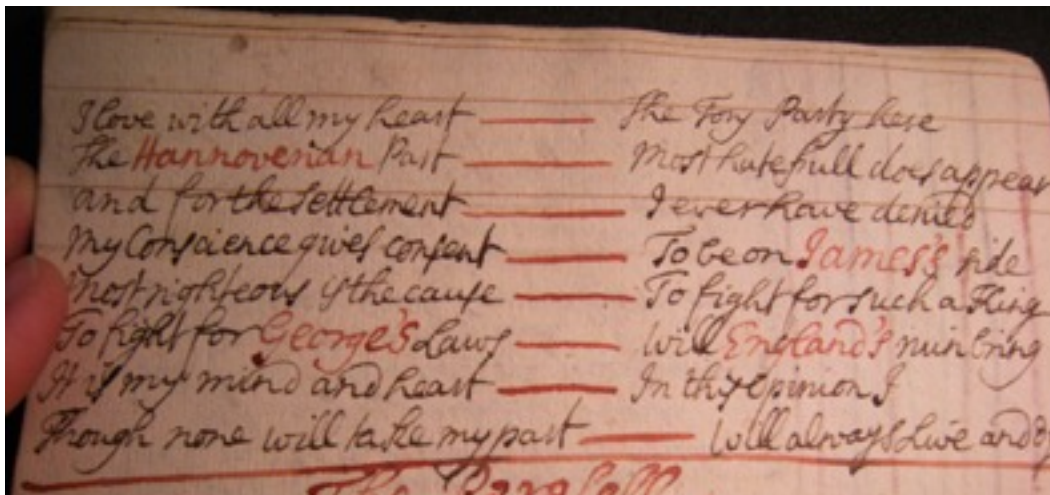 I love with all my heart — The Tory Party here
The Hannoverian Part — Most hatefull does appear
and for the Settlement — I ever have denied
My Conscience gives consent — To be on James's side
Most righteous is the cause — To fight for such a King
To fight for George's Laws — Will England's ruin bring
It is my mind and heart — In this opinion I
Though none will take my part — Will always Live and
The